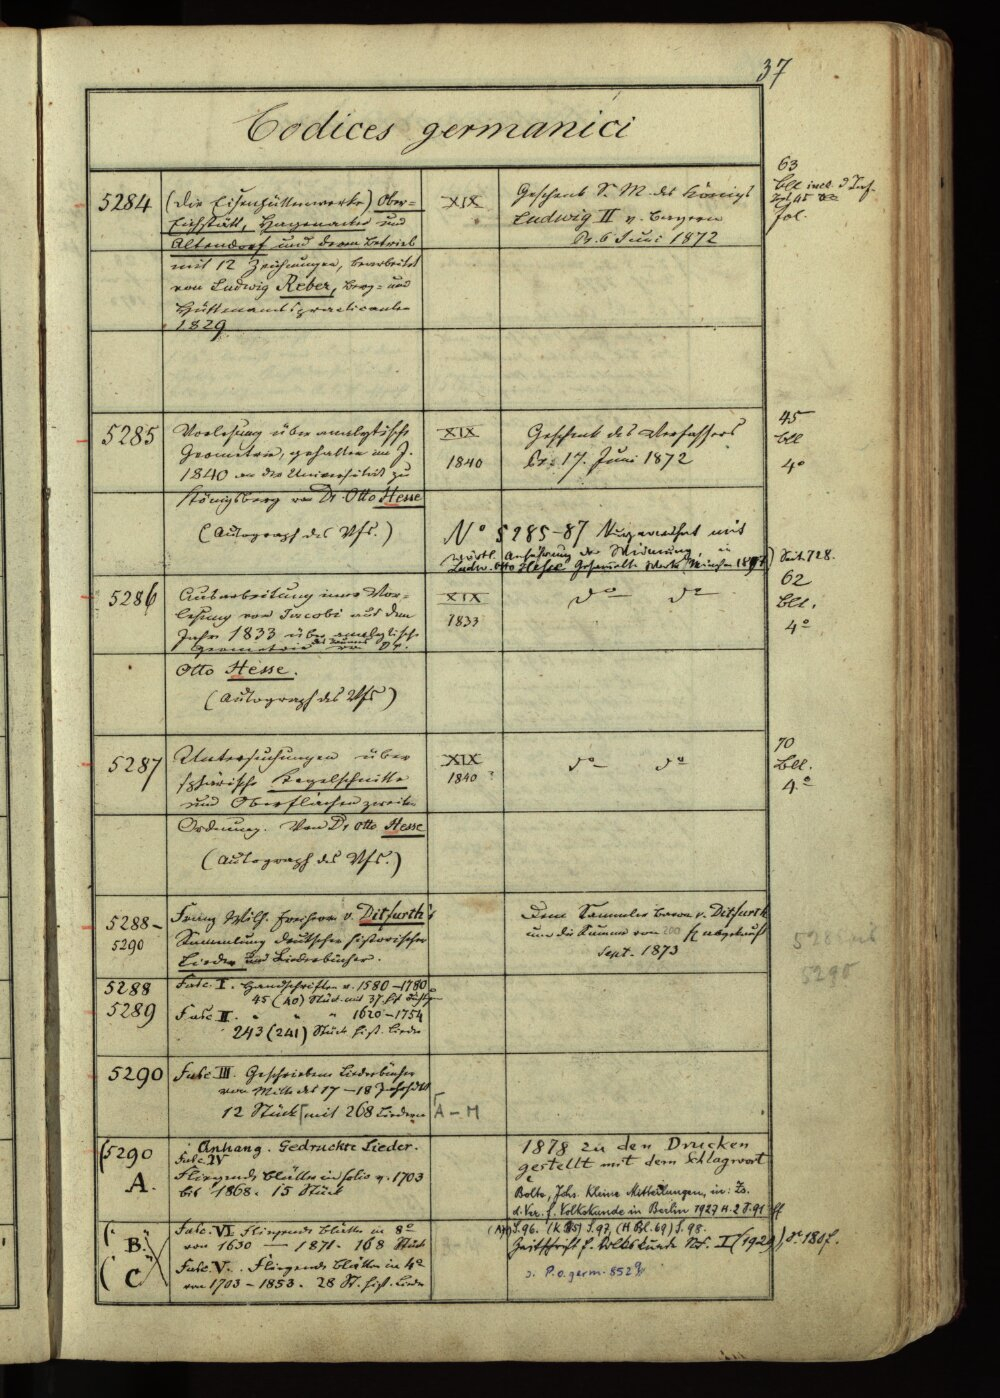 37
Codices germanici
5284
(Die Eisenhüttenwerke) Ober-
Eichstätt, Hagenacker und
Altendorf und deren Betrieb
mit 12 Zeichnungen, bearbeitet
von Ludwig Reber, Berg- und
Hüttenamtspracticanten
1829
XIX
Geschenk S. M. des Königs
Ludwig II v. Bayern
Pr. 6 Juni 1872
63
Bll incl.
fol.
5285
Vorlesung über analytische
Geometrie, gehalten im J.
1840 an der Universität zu
Königsberg von Dr. Otto Hesse
(Autograph des Vfs.)
XIX
1840
Geschenk des Verfassers
Pr. 17. Juni 1872
45
Bll
4°
N° 5285-87 mit
wörtl. Anführung der Widmung, in
Ludw. Otto Hesse Gesammelte Werke (München 1897) Seite 728.
5286
Ausarbeitung einer Vor-
lesung von Jacobi aus dem
Jahre 1833 über analytische
Geometrie des Raumes von Dr.
Otto Hesse.
(Autograph des Vfs)
XIX
1833
do do
62
Bll.
4°
5287
Untersuchungen über
sphärische Kegelschnitte
und Oberflächen zweiter
Ordnung. Von Dr Otto Hesse
(Autograph des Vfs.)
XIX
1840
do do
70
Bll.
4°
5288-
5290
Franz Wilh. Freiherrn v. Ditfurth's
Sammlung deutscher historischer
Lieder und Liederbücher.
Dem Sammler Baron v. Ditfurth
um die Summe von 200 fl abgekauft
Sept. 1873
5288 bis
5290
5288
Fasc. I. Handschriften v. 1580-1780
45 (40) Stück mit 37
5289
Fasc II. " " " 1620-1754
243 (241) Stück hist. Lieder
5290
Fasc III. Geschriebene Liederbücher
von Mitte des 17-18 Jahrhdts
12 Stück mit 268 Liedern
A-M
(5290
A.
Anhang. Gedruckte Lieder.
Fasc. IV
Fliegende Blätter in folio v. 1703
bis 1868. 15 Stück
1878 zu den Drucken
gestellt mit dem Schlagwort
Bolte, Johs. Kleine Mitteilungen, in: Zs.
d. Ver. f. Volkskunde in Berlin 1927 H. 2 S. 91 ff
( " "
B.
Fasc. VI Fliegende Blätter in 8°
von 1630 - 1871. 168 Stück
S. 96. S. 97, (H Bl. 69) S. 98.
Zeitschrift f. Volkskunde NF. I (1929), S. 180 f.
( " "
C
Fasc. V. Fliegende Blätter in 4°
von 1703-1853. 28 St. hist. Lieder
s. P.o.germ. 852